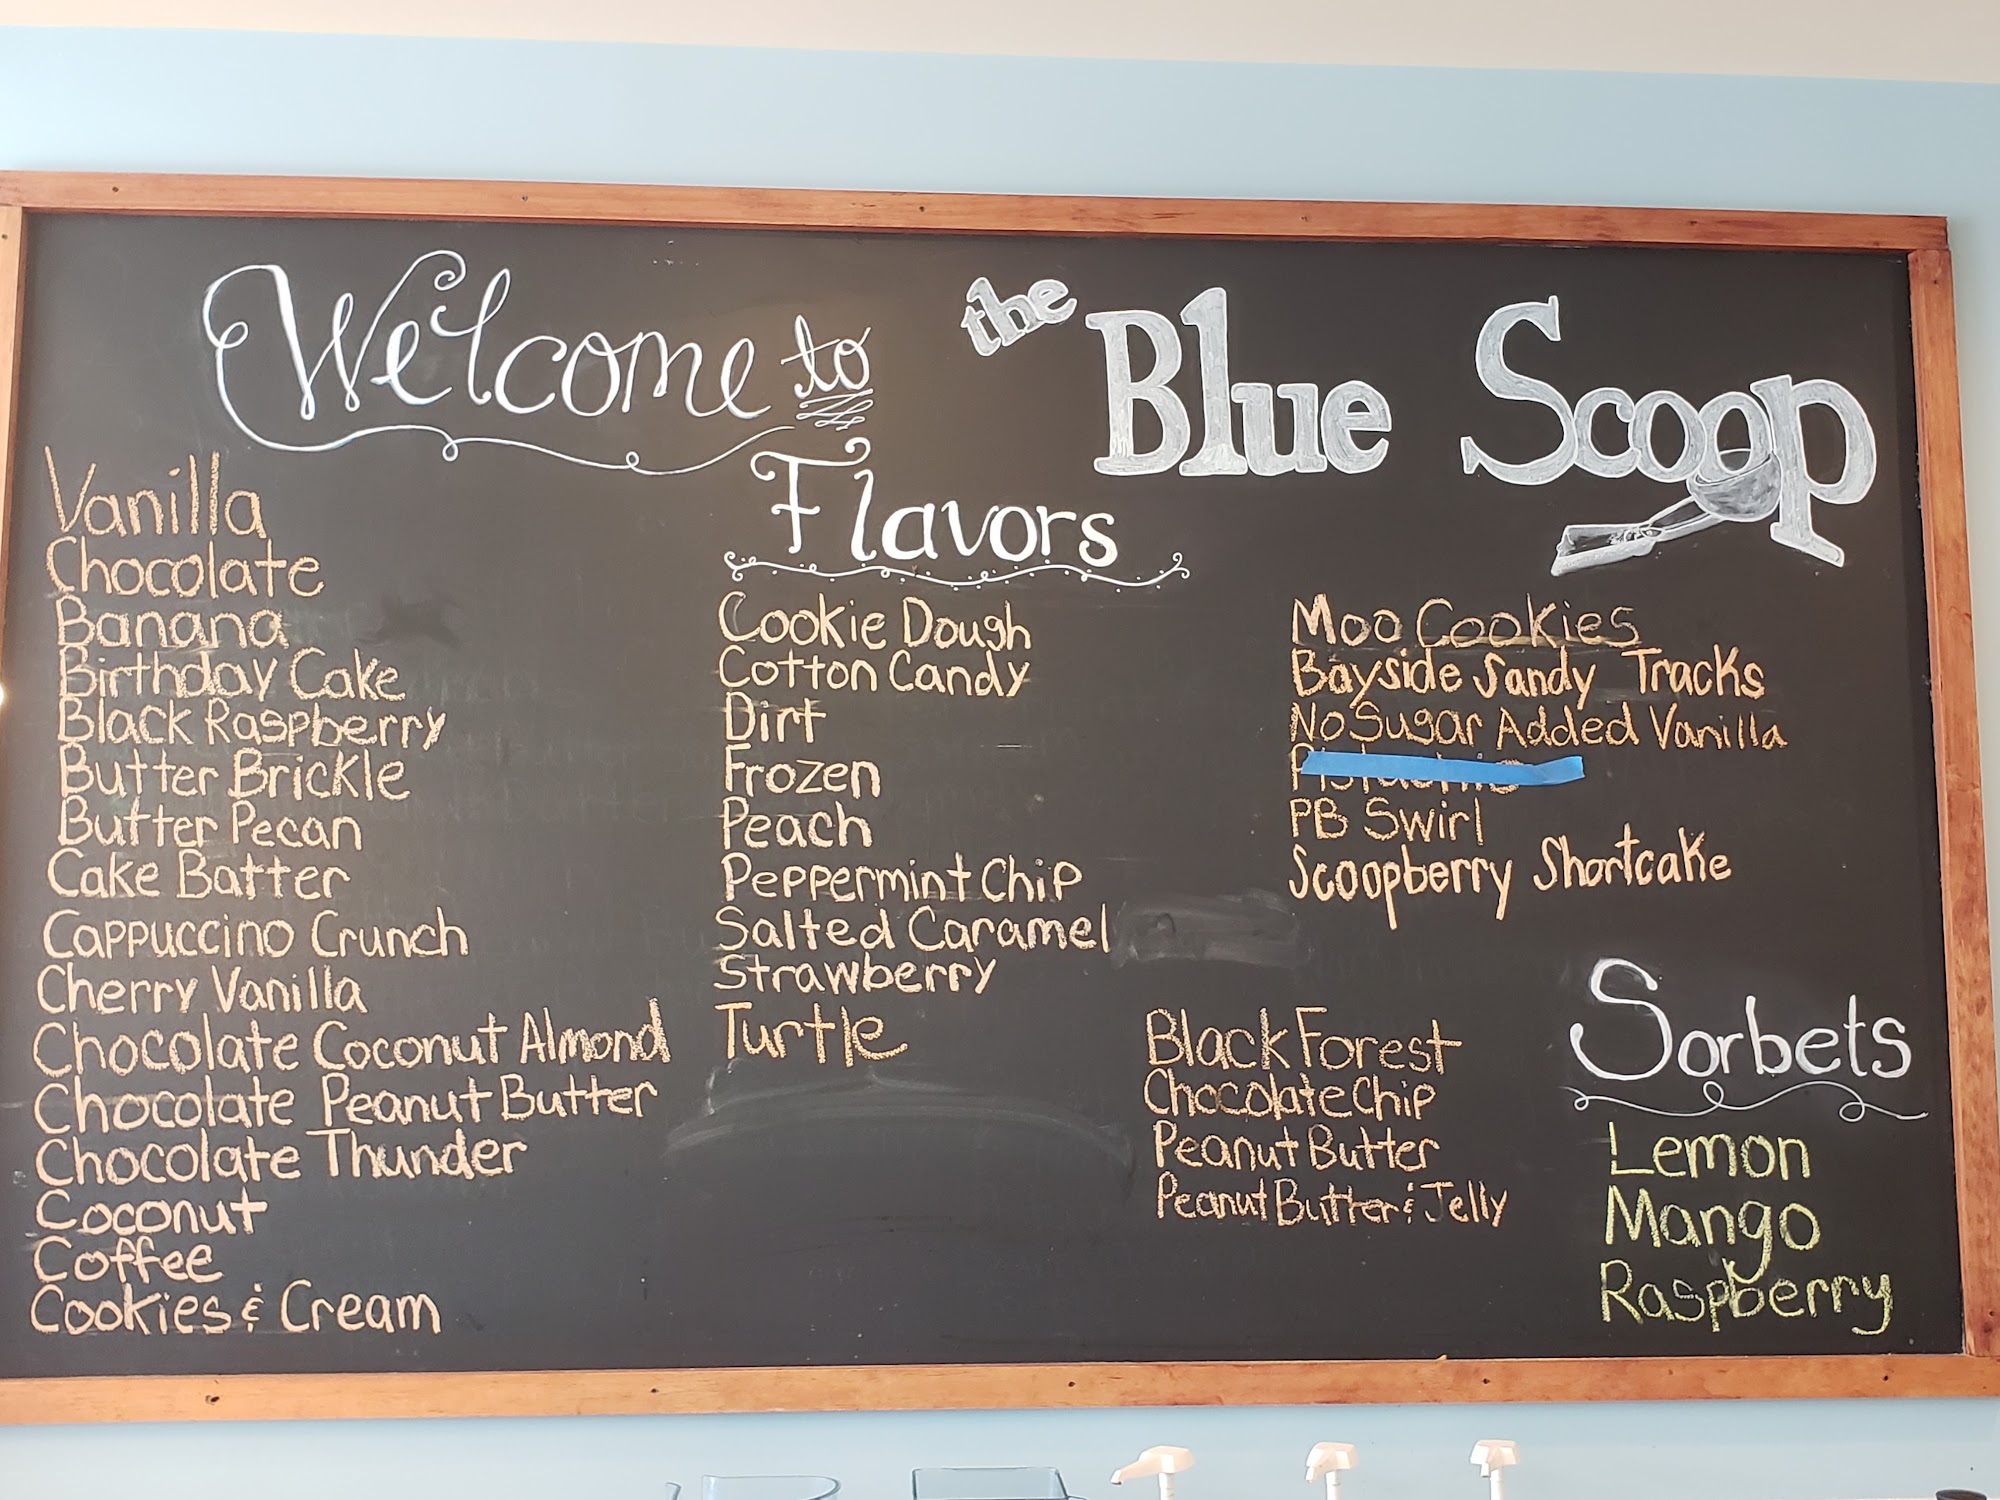 Welcome to
the Blue Scoop
Flavors
Vanilla
Chocolate
Banana
Birthday Cake
Black Raspberry
Butter Brickle
Butter Pecan
Cake Batter
Cappuccino Crunch
Cherry Vanilla
Chocolate Coconut Almond
Chocolate Peanut Butter
Chocolate Thunder
Coconut
Coffee
Cookies & Cream
Cookie Dough
Cotton Candy
Dirt
Frozen
Peach
Peppermint Chip
Salted Caramel
Strawberry
Turtle
Moo Cookies
Bayside Sandy Tracks
No Sugar Added Vanilla
PB Swirl
Scoopberry Shortcake
Black Forest
Chocolate Chip
Peanut Butter
Peanut Butter & Jelly
Sorbets
Lemon
Mango
Raspberry